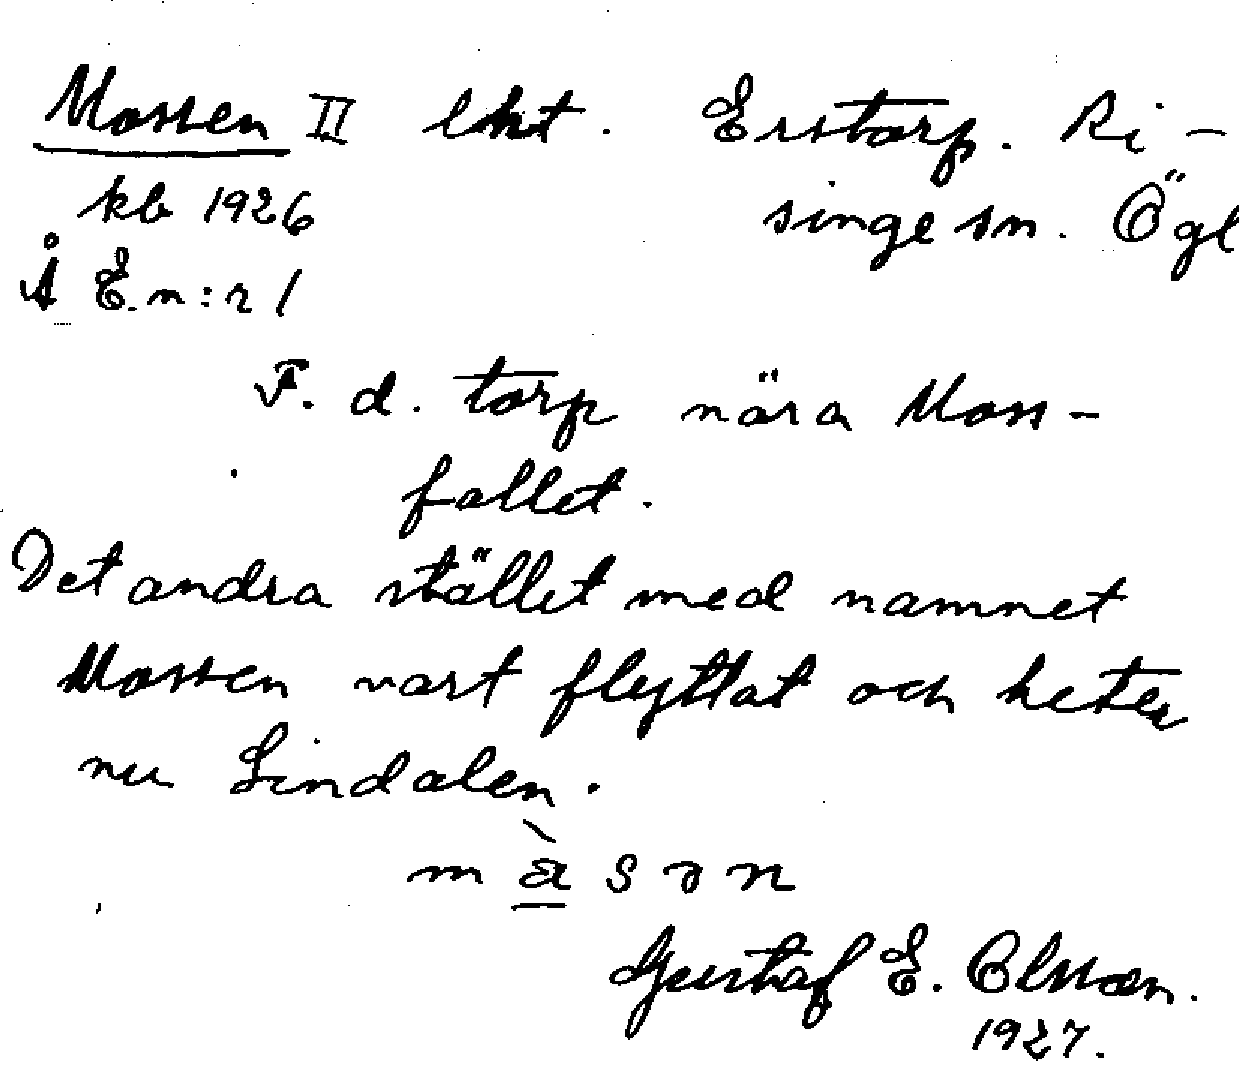 Mossen II lht. Erstorp. Ri-
kb 1926 singe sn. Ögl
Å E. n:r 1
F. d. torp nära Moss-
fallet.
Det andra stället med namnet
Mossen vart flyttat och heter
nu Lindalen.
m s ə n
Gustaf E. Olsson.
1927.